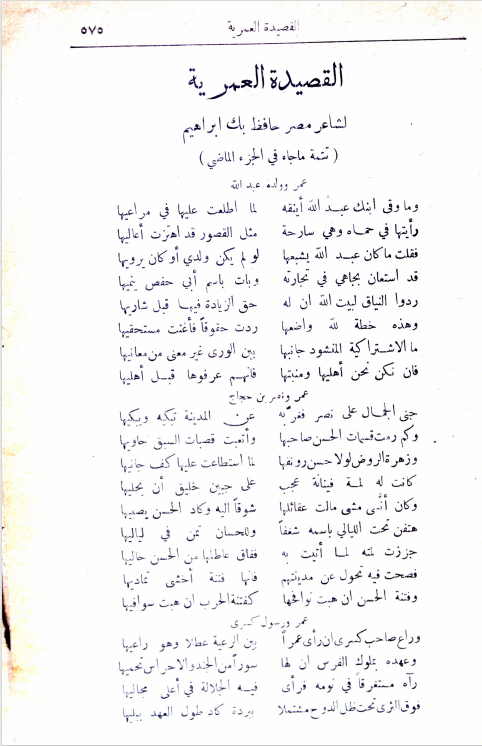 القصيدة العمرية ٥٧٥
القصيدة العمرية
لشاعر مصر حافظ بك ابراهيم
( تتمة ماجاء في الجزء الماضي )
عمر وولده عبد الله
وما وقى ابنك عبد الله أينقه لما اطلعت عليها في مراعيها
رأيتها في حماه وهي سارحة مثل القصور قد اهتزت أعاليها
فقلت ماكان عبد الله يشبعها لو لم يكن ولدي أو كان يرويها
قد استعان بجاهي في تجارته وبات باسم أبي حفص ينميها
ردوا النياق لبيت الله ان له حق الزيادة فيها قبل شاريها
وهذه خطة لله واضعها ردت حقوقاً فأغنت مستحقيها
ما الاشتراكية المنشود جانبها بين الورى غير معنى من معانيها
فان نكن نحن أهليها ومنبتها فانهم عرفوها قبل أهليها
عمر ونصر بن حجاج
جنى الجمال على نصر فغرّبه عن المدينة تبكيه ويبكيها
وكم رمت قسمات الحسن صاحبها وأتعبت قصبات السبق حاويها
وزهرة الروض لولا حسن رونقها لما استطاعت عليها كف جانيها
كانت له لمة فينانة عجب على جبين خليق أن يحليها
وكان أنَّى مشى مالت عقائلها شوقاً اليه وكاد الحسن يصبيها
هتفن تحت الليالي باسمه شغفاً وللحسان تمن في لياليها
جززت لمته لما أتيت به ففاق عاطلها من الحسن حاليها
فصحت فيه تحول عن مدينتهم فانها فتنة أخشى تماديها
وفتنة الحسن ان هبت نوافحها كفتنة الحرب ان هبت سوافيها
عمر ورسول كسرى
وراع صاحب كسرى ان رأى عمراً بين الرعية عطلا وهو راعيها
وعهده بملوك الفرس ان لها سوراً من الجند والاحراس تحميها
رآه مستغرقاً في نومه فرأى فيه الجلالة في أعلى مجاليها
فوق الثرى تحت ظل الدوح مشتملا ببردة كاد طول العهد يبليها